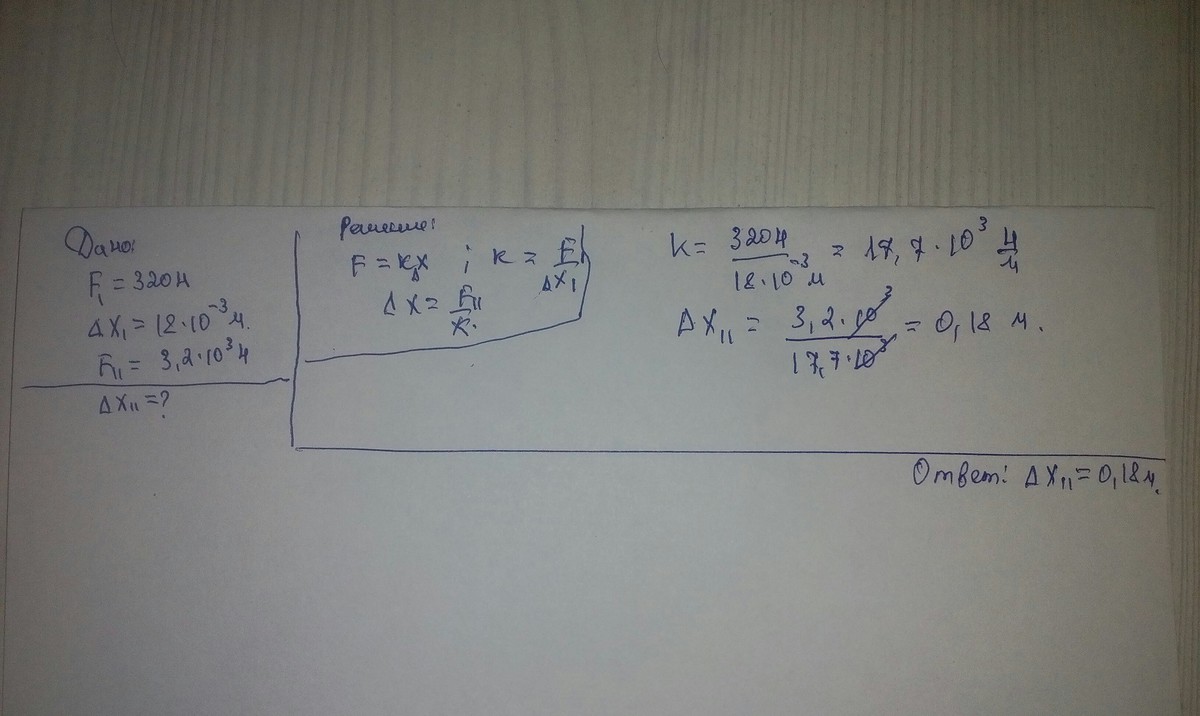 Дано:
F₁ = 320 Н
Δx₁ = 18·10⁻³ м.
F₁₁ = 3,2·10³ Н
Δx₁₁ = ?
Решение:
F = kΔx ; k = F₁/Δx₁
Δx = F₁₁/k.
k = 320 Н/18·10⁻³ м = 17,7·10³ Н/м
Δx₁₁ = 3,2·10³/17,7·10³ = 0,18 м.
Ответ: Δx₁₁ = 0,18 м.